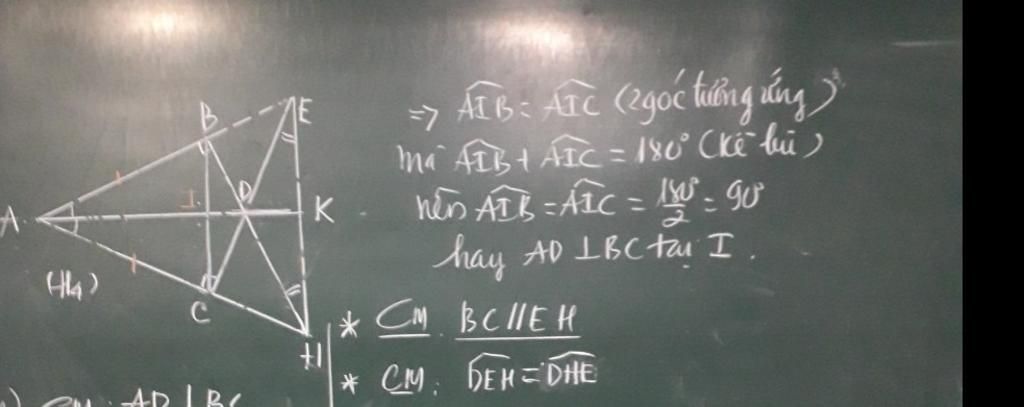 B
E
I
D
A
K
(H4)
C
H
=> AIB = AIC (2 góc tương ứng)
mà AIB + AIC = 180° (kề bù)
nên AIB = AIC = 180°/2 = 90°
hay AD ⊥ BC tại I.
* CM: BC // EH
* CM: DEH = DHE
CM: AD ⊥ BC